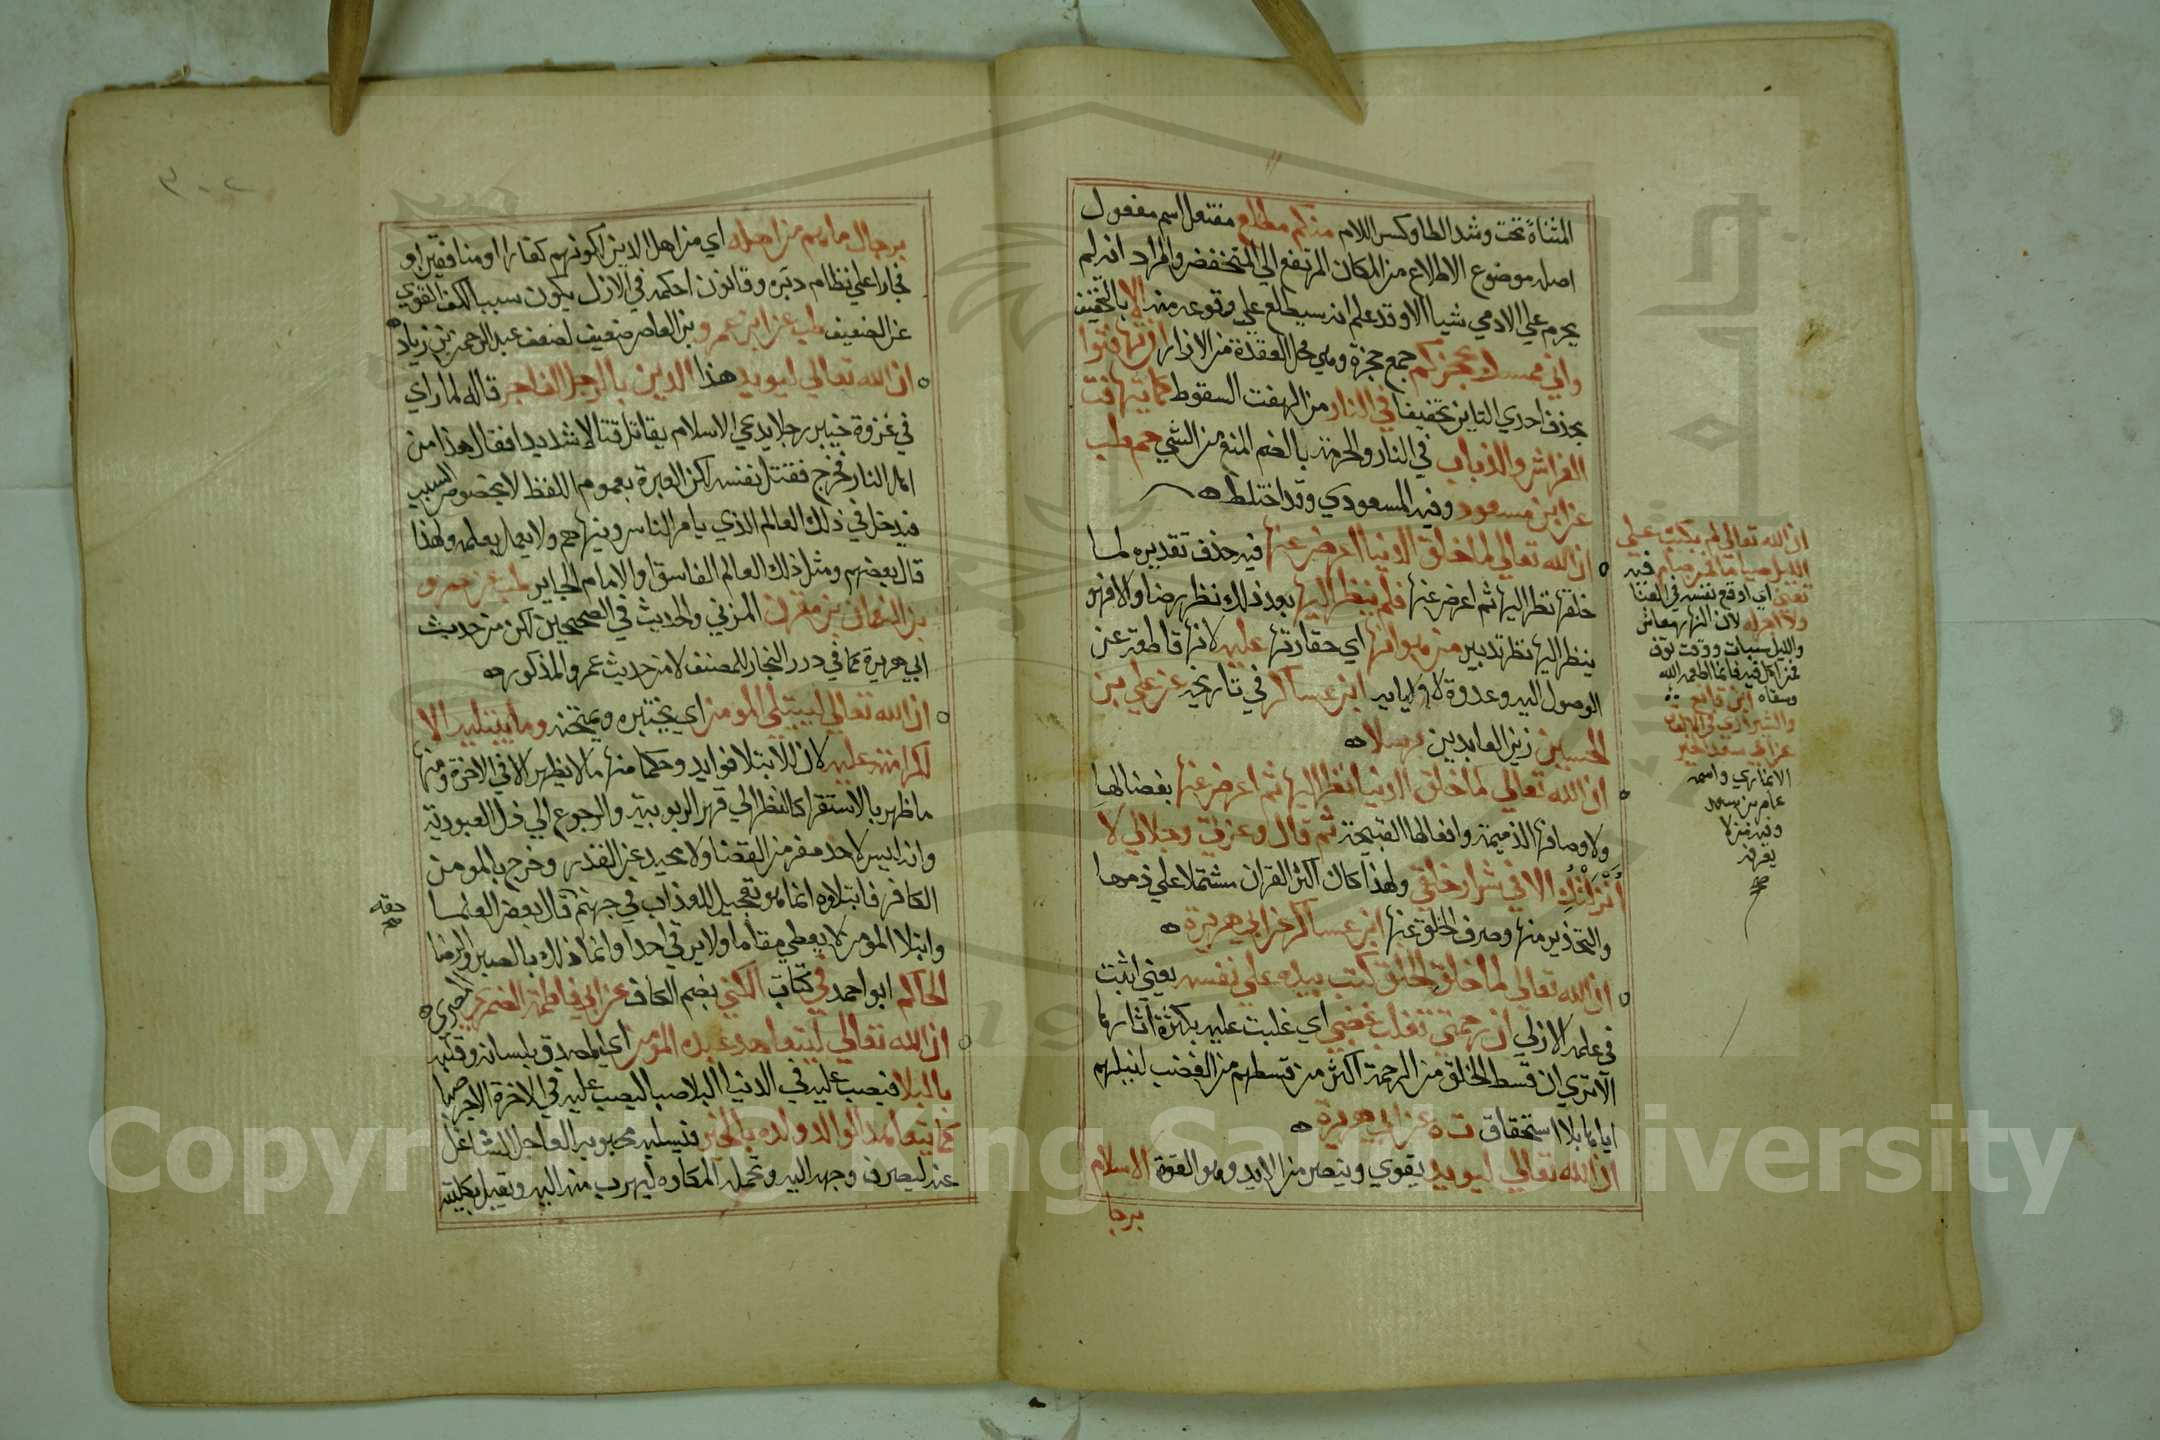 المثناة تحت وشد الطا وكسر اللام منكم مطلع مفتعل اسم مفعول
اصله موضوع الاطلاع من المكان المرتفع الي المنخفض والمراد انه لم
يحرم علي الادمي شيا الا وقد علم انه سيطلع علي وقوعه منه الا بالتخفيف
واني ممسك بحجزكم جمع حجزة وهي محل العقدة من الازار ان تهافتوا
بحذف احدي التاين تخفيفا في النار من الهفت السقوط كما يتهافت
الفراش والذباب في النار والحرمة بالضم المنع من الشي حم طب
عن ابن مسعود وفيه المسعودي وقد اختلط
ان الله تعالي لما خلق الدنيا اعرض عنها فيه حذف تقديره لما
خلقها نظر اليها ثم اعرض عنها فلم ينظر اليها بعد ذلك نظر رضا والا فهو
ينظر اليها نظر تدبير من هوانها اي حقارتها عليه لانها قاطعة عن
الوصول اليه وعدوة لاوليايه ابن عساكر في تاريخه عن علي بن
الحسين زين العابدين مرسلا
ان الله تعالي لما خلق الدنيا نظر اليها ثم اعرض عنها بغضا لها
ولاوصافها الذميمة وافعالها القبيحة ثم قال وعزتي وجلالي لا
أنزلتك الا في شرار خلقي ولهذا كان اكثر القران مشتملا علي ذمها
والتحذير منها وصرف الخلق عنها ابن عساكر عن ابي هريرة
ان الله تعالي لما خلق الخلق كتب بيده علي نفسه يعني اثبت
في علمه الازلي ان رحمتي تغلب غضبي اي غلبت عليه بكثرة آثارها
الا تري ان قسط الخلق من الرحمة اكثر من قسطهم من الغضب لنيلهم
اياها بلا استحقاق ت ه عن ابي هريرة
ان الله تعالي ليويد يقوي وينصر من الايد وهو القوة الاسلام
برجا
ان الله تعالي لم يكتب علي
الليل صياما فمن صام فيه
تعني اي اوقع نفسه في العنا
ولا اجر له لان النهار معاش
والليل سبات ووقت توف
فمن اكل فيه فانما اطعمه الله
وسقاه ابن قانع
والشيرازي في الالقاب
عن ابي سعد الخير
الانماري واسمه
عامر بن سعد
وفيه من لا
يعرف
برجال ما هم من اهله اي من اهل الدين لكونهم كفارا او منافقين او
فجارا علي نظام دبَره وقانون احكمه في الازل يكون سببا لكف القوي
عن الضعيف طب عن ابن عمرو بن العاص ضعيف لضعف عبد الرحمن بن زياد
ان الله تعالي ليويد هذا الدين بالرجل الفاجر قاله لما راي
في غزوة خيبر رجلا يدعي الاسلام يقاتل قتالا شديدا فقال هذا من
اهل النار فجرح فقتل نفسه لكن العبرة بعموم اللفظ لا بخصوص السبب
فيدخل في ذلك العالم الذي يامر الناس وينهاهم ولا يعمل بعلمه ولهذا
قال بعضهم ومثل ذلك العالم الفاسق والامام الجاير طب عن عمرو
بن النعمان بن مقرن المزني والحديث في الصحيحين لكن من حديث
ابي هريرة كما في درر البحار للمصنف لا من حديث عمرو المذكور
ان الله تعالي ليبتلي المومن اي يختبره ويمتحنه وما يبتليه الا
لكرامته عليه لان للابتلا فوايد وحكما منها ما لا يظهر الا في الاخرة ومنها
ما ظهر بالاستقرا كالنظر الي قهر الربوبية والرجوع الي ذل العبودية
وانه ليس لاحد مفر من القضا ولا محيد عن القدر وخرج بالمومن
الكافر فابتلاوه انما هو تعجيل للعذاب في جهنم قال بعض العلما
وابتلا المومن لا يعطي مقاما ولا يرقي احدا وانما ذلك بالصبر والرضا
الحاكم ابو احمد في كتاب الكني بضم الكاف عن ابي فاطمة الضمري المصري
ان الله تعالي ليتعاهد عبده المومن اي المصدق بلسانه وقلبه
بالبلا فيصب عليه في الدنيا البلا صبا ليصب عليه في الاخرة الاجر صبا
كما يتعاهد الوالد ولده بالخير فيسلبه محبوبه العاجل الشاغل
عنه ليصرف وجهه اليه وتحمله المكاره ليهرب منه اليه ويقبل بكليته
حقه
Copyright © King Saud University